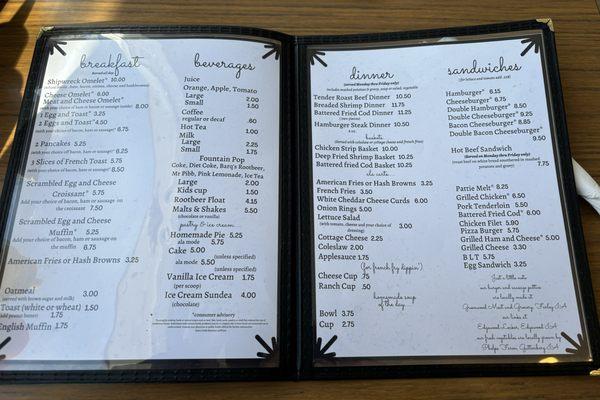 breakfast
Served all day
Shipwreck Omelet* 10.00
Cheese Omelet* 6.00
Meat and Cheese Omelet*
(with your choice of bacon, ham or sausage inside) 8.00
1 Egg and Toast* 3.25
2 Eggs and Toast* 4.50
(with your choice of bacon, ham or sausage* 6.75
2 Pancakes 5.25
(with your choice of bacon, ham or sausage* 6.25
3 Slices of French Toast 5.75
(with your choice of bacon, ham or sausage* 8.50
Scrambled Egg and Cheese
Croissant* 5.75
Add your choice of bacon, ham or sausage on
the croissant 7.50
Scrambled Egg and Cheese
Muffin* 5.25
Add your choice of bacon, ham or sausage on
the muffin 6.75
American Fries or Hash Browns 3.25
Oatmeal 3.00
(served with brown sugar and milk)
Toast (white or wheat) 1.50
(add peanut butter) 1.75
English Muffin 1.75
beverages
Juice
Orange, Apple, Tomato
Large 2.00
Small 1.50
Coffee
regular or decaf .60
Hot Tea 1.00
Milk
Large 2.25
Small 1.75
Fountain Pop
Coke, Diet Coke, Barq's Rootbeer,
Mr Pibb, Pink Lemonade, Ice Tea
Large 2.00
Kids cup 1.50
Rootbeer Float 4.15
Malts & Shakes 5.50
(chocolate or vanilla)
pastry & ice cream
Homemade Pie 5.25
ala mode 5.75
Cake 5.00 (unless specified)
ala mode 5.50
(unless specified)
Vanilla Ice Cream 1.75
(per scoop)
Ice Cream Sundea 4.00
(chocolate)
*consumer advisory
dinner
(served Monday thru Friday only)
Tender Roast Beef Dinner 10.50
Breaded Shrimp Dinner 11.75
Battered Fried Cod Dinner 11.25
Hamburger Steak Dinner 10.50
baskets
(served with coleslaw or cottage cheese and french fries)
Chicken Strip Basket 10.00
Deep Fried Shrimp Basket 10.25
Battered fried Cod Basket 10.25
ala carte
American Fries or Hash Browns 3.25
French Fries 3.50
White Cheddar Cheese Curds 6.00
Onion Rings 5.00
Lettuce Salad
(with tomato, cheese and your choice of dressing) 3.00
Cottage Cheese 2.25
Coleslaw 2.00
Applesauce 1.75
(for french fry dippin')
Cheese Cup .75
Ranch Cup .50
homemade soup
of the day
Bowl 3.75
Cup 2.75
sandwiches
(for lettuce and tomato add .50¢)
Hamburger* 6.15
Cheeseburger* 6.75
Double Hamburger* 8.50
Double Cheeseburger* 9.25
Bacon Cheeseburger* 8.85
Double Bacon Cheeseburger*
9.50
Hot Beef Sandwich
(Served on Monday thru Friday only)
(roast beef on white bread smothered in mashed
potatoes and gravy) 7.75
Pattie Melt* 8.25
Grilled Chicken* 6.50
Pork Tenderloin 5.50
Battered Fried Cod* 6.00
Chicken Filet 5.90
Pizza Burger 5.75
Grilled Ham and Cheese* 5.00
Grilled Cheese 3.30
B L T 5.75
Egg Sandwich 3.25
Just a little note
our burger and sausage patties
are locally made at
Greenwood Meat and Grocery, Farley IA
our pork at
Edgewood Locker, Edgewood IA
our fresh vegetables are locally grown by